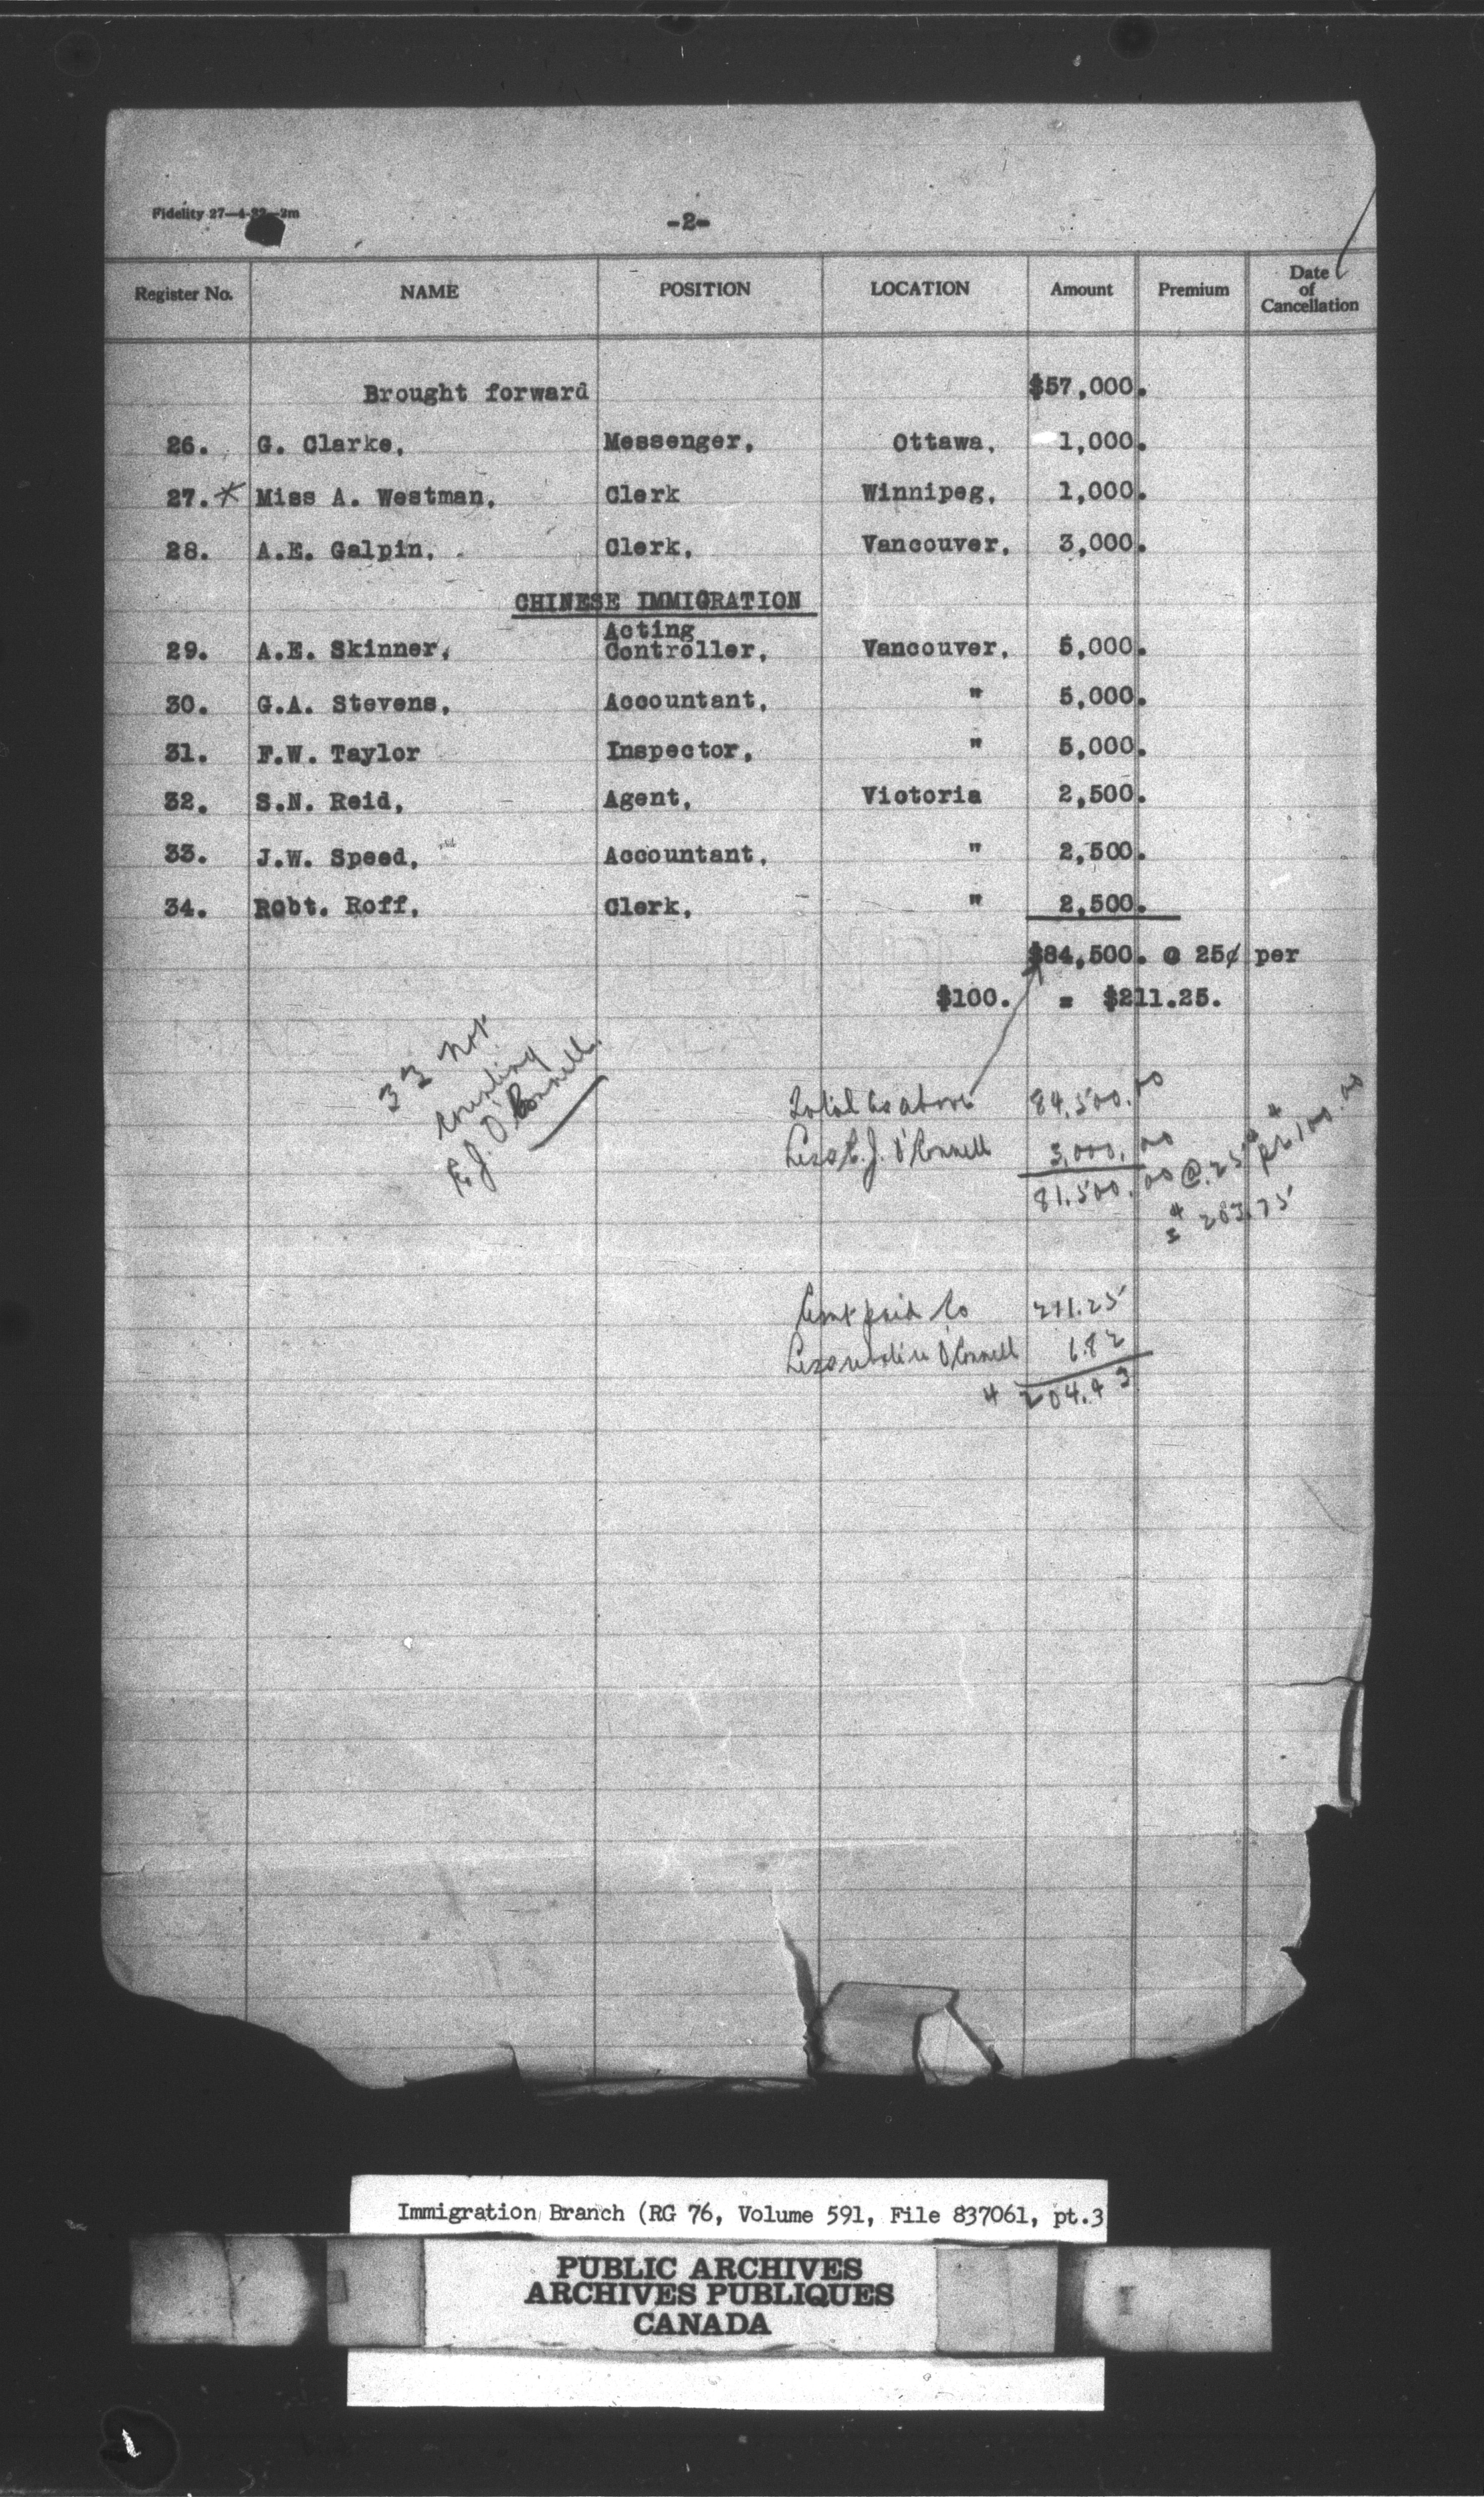 Fidelity 27—4-32—2m
-2-
Register No. NAME POSITION LOCATION Amount Premium Date of Cancellation
Brought forward $57,000.
26. G. Clarke, Messenger, Ottawa, 1,000.
27.* Miss A. Westman, Clerk Winnipeg, 1,000.
28. A.E. Galpin, Clerk, Vancouver, 3,000.
CHINESE IMMIGRATION
29. A.E. Skinner, Acting Controller, Vancouver, 5,000.
30. G.A. Stevens, Accountant, " 5,000.
31. F.W. Taylor Inspector, " 5,000.
32. S.N. Reid, Agent, Victoria 2,500.
33. J.W. Speed, Accountant, " 2,500.
34. Robt. Roff, Clerk, " 2,500.
$84,500. @ 25¢ per
$100. = $211.25.
33 not
counting
E.J. O'Connell.
Total as above 84,500.00
Less E.J. O'Connell 3,000.00
81,500.00 @ .25 per $100.00
= $203.75
Amt paid Co 211.25
Less O'Connell 6.82
$ 204.43
Immigration Branch (RG 76, Volume 591, File 837061, pt.3
PUBLIC ARCHIVES
ARCHIVES PUBLIQUES
CANADA